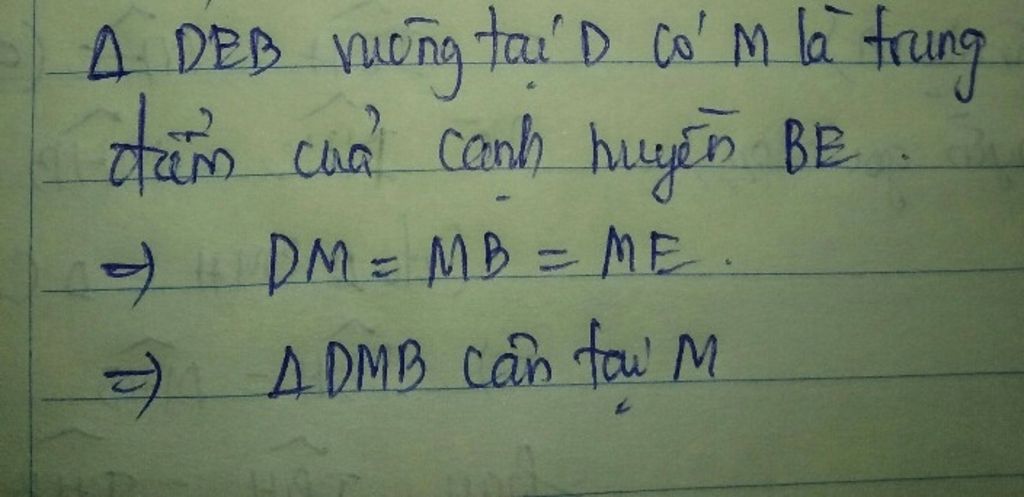 Δ DEB vuông tại D có M là trung
điểm của cạnh huyền BE.
=> DM = MB = ME.
=> Δ DMB cân tại M